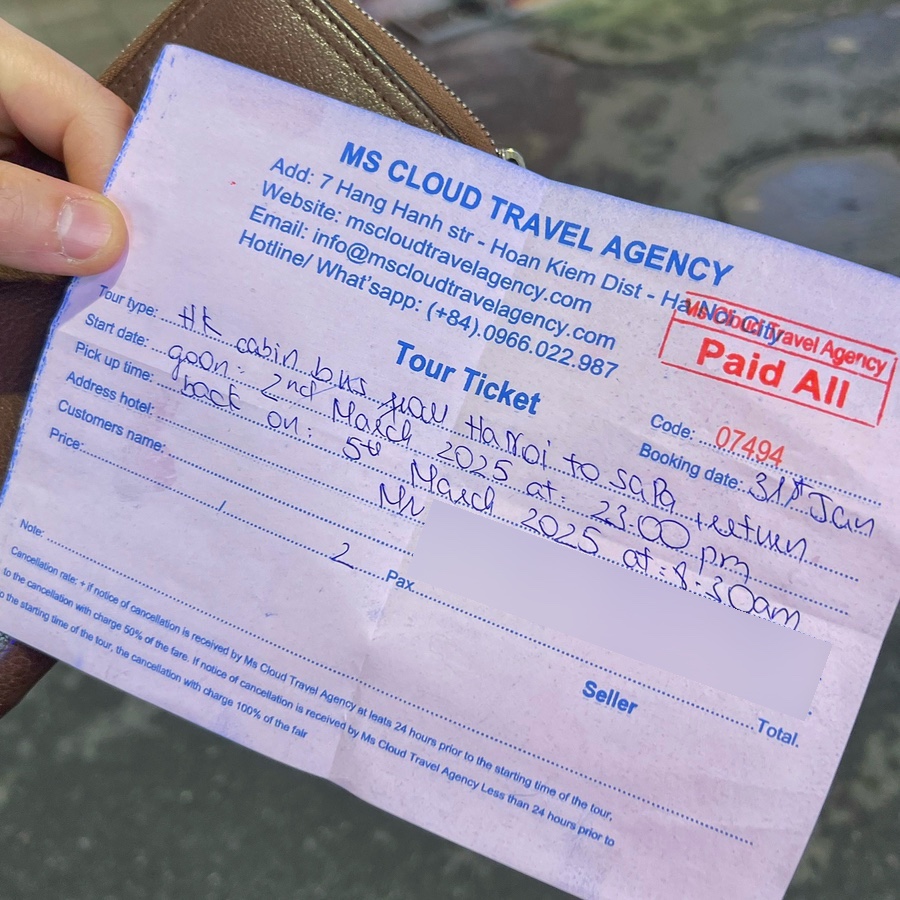 MS CLOUD TRAVEL AGENCY
Add: 7 Hang Hanh str - Hoan Kiem Dist - Ha Noi City
Website: mscloudtravelagency.com
Email: info@mscloudtravelagency.com
Hotline/ What'sapp: (+84).0966.022.987
Ms Cloud Travel Agency
Paid All
Tour Ticket
Code: 07494
Booking date: 31st Jan
Tour type: HK cabin bus Hanoi to Sapa return
Start date: goon: 2nd March 2025 at: 23.00 pm
Pick up time: back on: 5th March 2025 at: 8:30am
Address hotel:
Customers name:
Price: / 2 Pax Total.
Seller
Note:
Cancellation rate: + if notice of cancellation is received by Ms Cloud Travel Agency at leats 24 hours prior to the starting time of the tour,
to the cancellation with charge 50% of the fare. If notice of cancellation is received by Ms Cloud Travel Agency Less than 24 hours prior to
the starting time of the tour, the cancellation with charge 100% of the fair